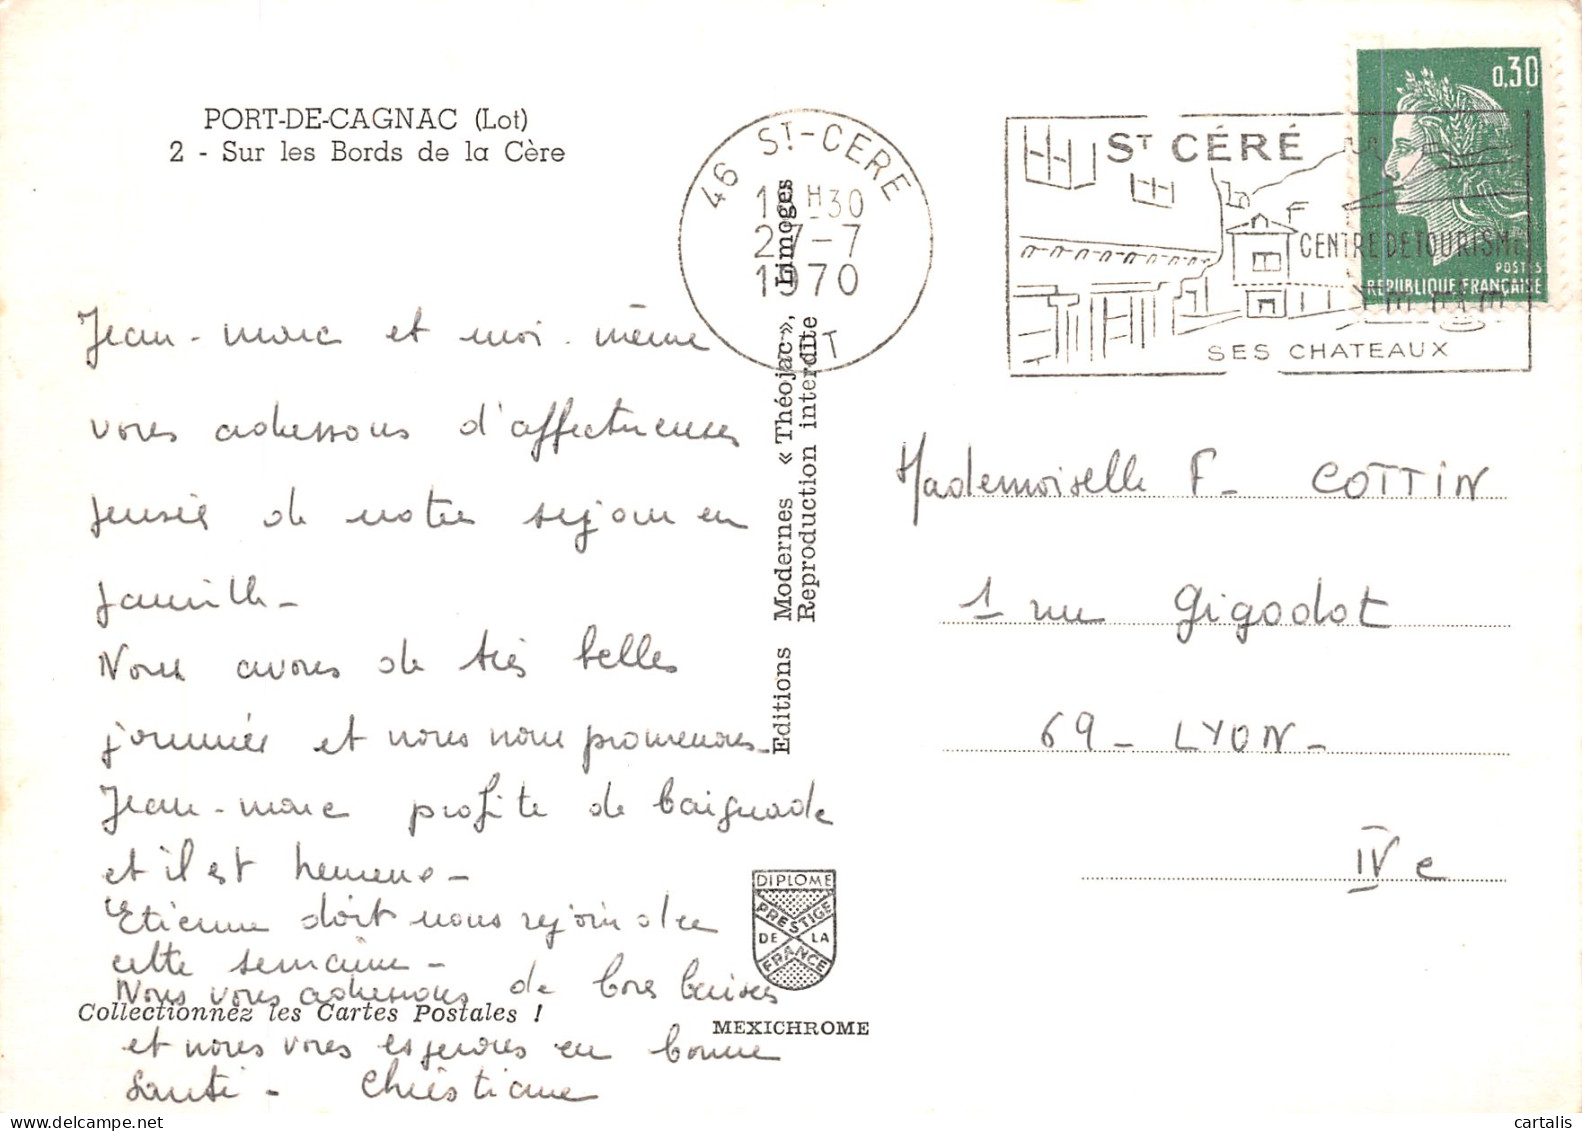 PORT-DE-CAGNAC (Lot)
2 - Sur les Bords de la Cère
46 St-CERE
27-7
1970
ST CÉRÉ
CENTRE DE TOURISME
SES CHATEAUX
0,30
POSTES
RÉPUBLIQUE FRANÇAISE
Jean-marc et moi-même
vous adressons d'affectueuses
pensées de notre séjour en
famille -
Nous avons de très belles
journées et nous nous promenons -
Jean-marc profite de baignade
et il est heureux -
Etienne doit nous rejoindre
cette semaine -
Nous vous adressons de bons baisers
et nous vous espérons en bonne
santé - Christiane
Collectionnez les Cartes Postales !
Editions Modernes « Théojac », Limoges
Reproduction interdite
DIPLOME
PRESTIGE
DE LA
FRANCE
MEXICHROME
Mademoiselle F - COTTIN
1 rue Gigodot
69 - LYON -
IVe
cartalis